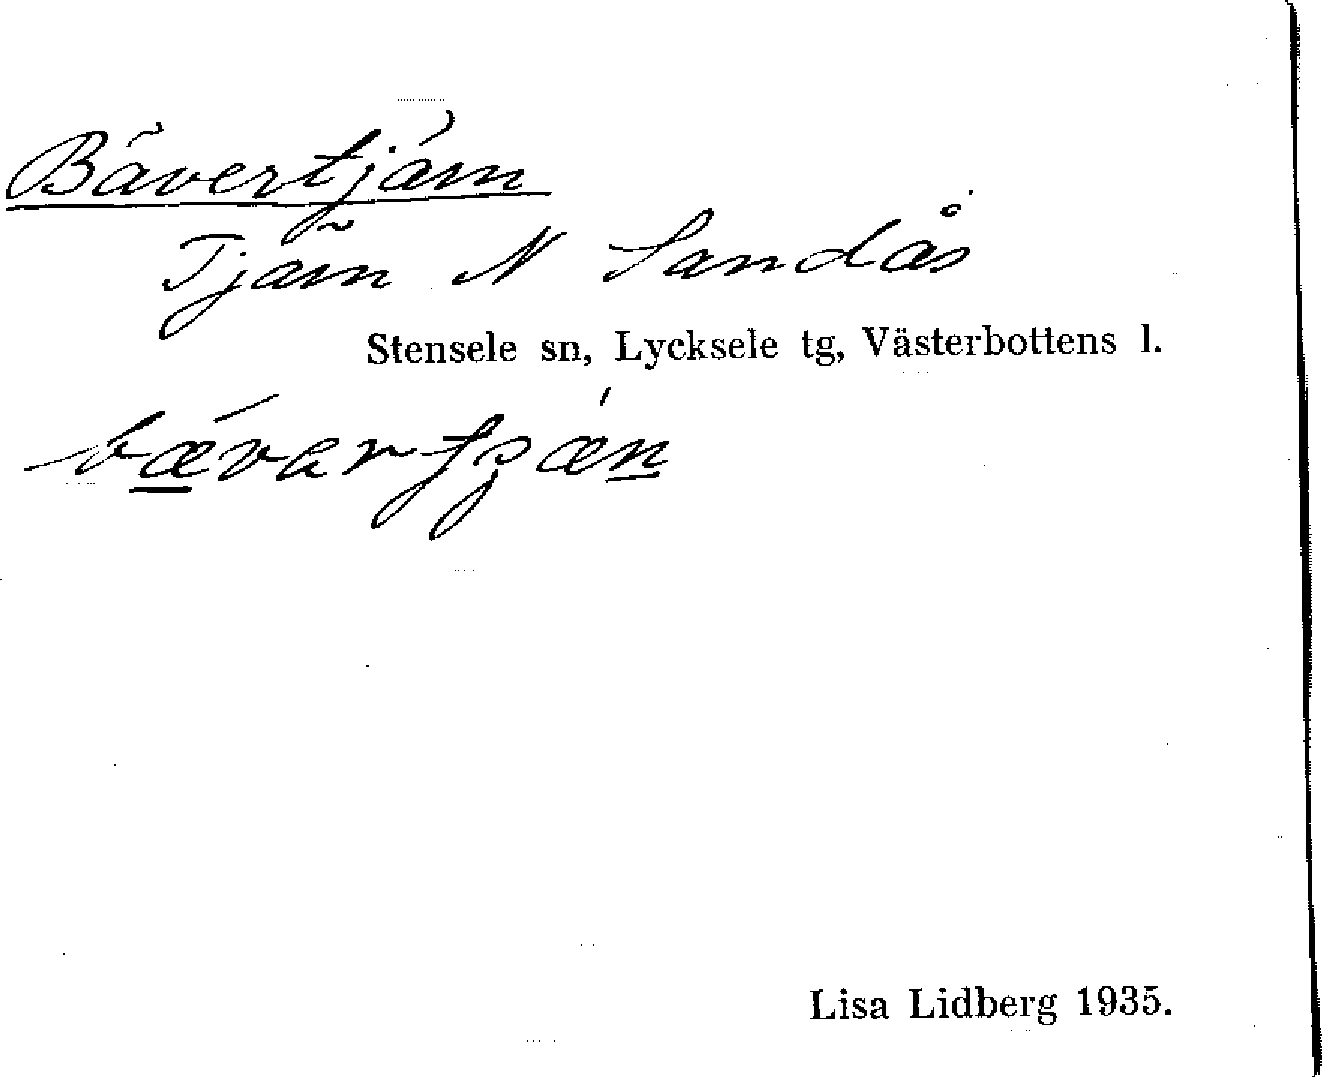 Bävertjärn
Tjärn N Sandås
Stensele sn, Lycksele tg, Västerbottens l.
Lisa Lidberg 1935.